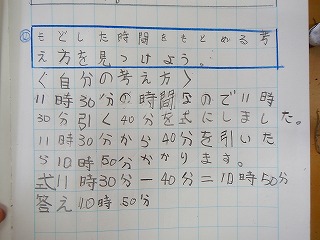 もどした時間をもとめる考
え方を見つけよう。
〈自分の考え方〉
11時30分の時間なので11時
30分引く40分を式にしました。
11時30分から40分を引いた
ら10時50分かかります。
式11時30分-40分=10時50分
答え10時50分